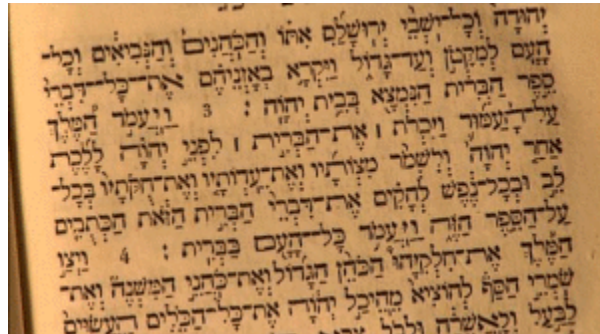 יְהוּדָה וְכָל־יֹשְׁבֵי יְרוּשָׁלִַם אִתּוֹ וְהַכֹּהֲנִים וְהַנְּבִיאִים וְכָל־
הָעָם לְמִקָּטֹן וְעַד־גָּדוֹל וַיִּקְרָא בְאָזְנֵיהֶם אֶת־כָּל־דִּבְרֵי
סֵפֶר הַבְּרִית הַנִּמְצָא בְּבֵית יְהוָה׃ 3 וַיַּעֲמֹד הַמֶּלֶךְ
עַל־הָעַמּוּד וַיִּכְרֹת ׀ אֶת־הַבְּרִית ׀ לִפְנֵי יְהוָה לָלֶכֶת
אַחַר יְהוָה וְלִשְׁמֹר מִצְוֹתָיו וְאֶת־עֵדְוֹתָיו וְאֶת־חֻקֹּתָיו בְּכָל־
לֵב וּבְכָל־נֶפֶשׁ לְהָקִים אֶת־דִּבְרֵי הַבְּרִית הַזֹּאת הַכְּתֻבִים
עַל־הַסֵּפֶר הַזֶּה וַיַּעֲמֹד כָּל־הָעָם בַּבְּרִית׃ 4 וַיְצַו
הַמֶּלֶךְ אֶת־חִלְקִיָּהוּ הַכֹּהֵן הַגָּדוֹל וְאֶת־כֹּהֲנֵי הַמִּשְׁנֶה וְאֶת־
שֹׁמְרֵי הַסַּף לְהוֹצִיא מֵהֵיכַל יְהוָה אֵת כָּל־הַכֵּלִים הָעֲשׂוּיִם
לַבַּעַל וְלָאֲשֵׁרָה וּלְכֹל